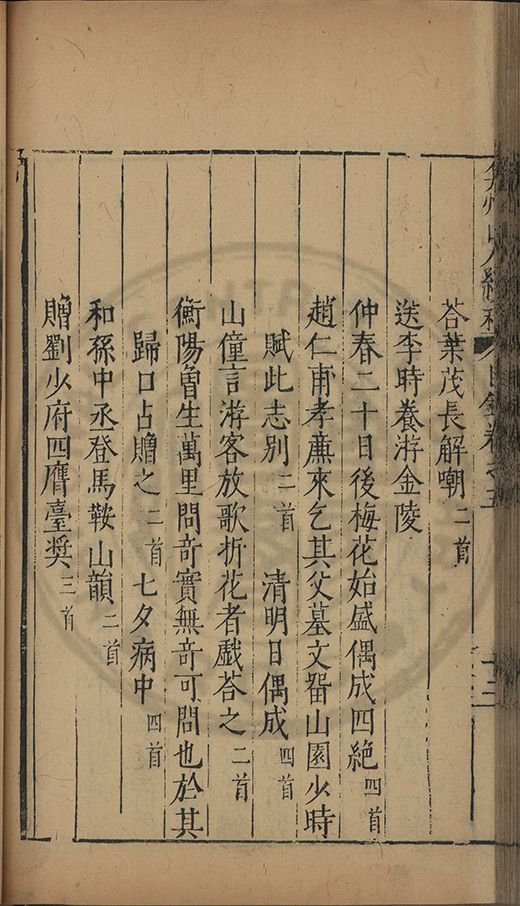 弇州山人續稿 目錄卷之五 十三
荅葉茂長解嘲二首
送李時養游金陵
仲春二十日後梅花始盛偶成四絶四首
趙仁甫孝廉來乞其父墓文畱山園少時
賦此志别二首 清明日偶成四首
山僮言游客放歌折花者戲荅之二首
衡陽曾生萬里問竒實無竒可問也於其
歸口占贈之二首 七夕病中四首
和孫中丞登馬鞍山韻二首
贈劉少府四膺臺奨三首